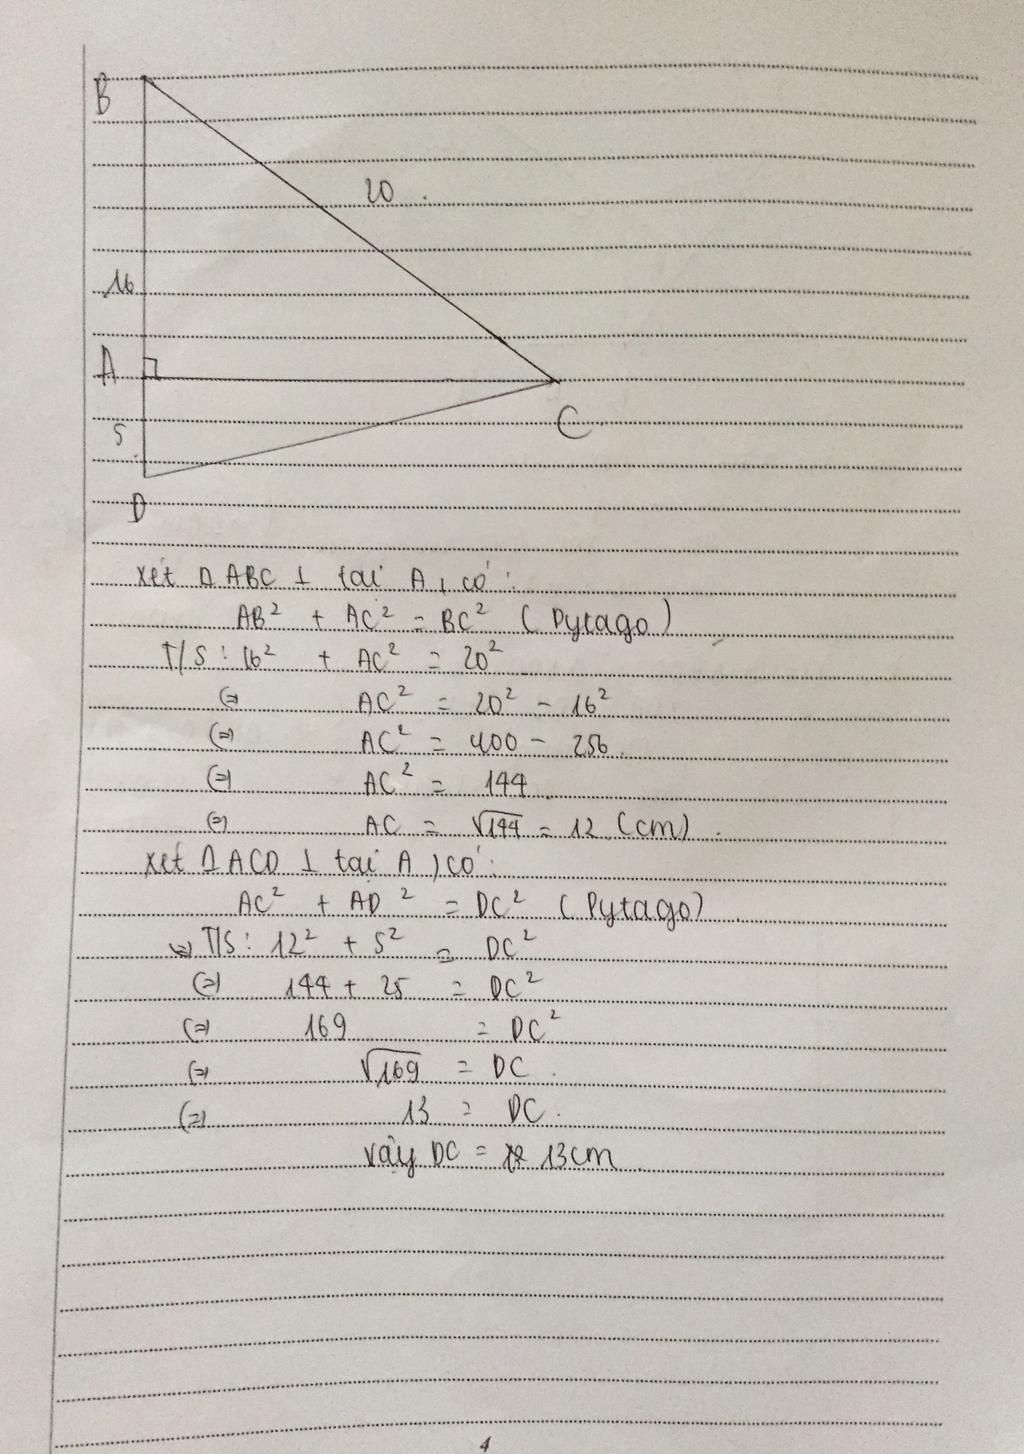 B
20
16
A
C
5
D
xét Δ ABC ⊥ tại A, có :
AB² + AC² = BC² ( Pytago )
T/S : 16² + AC² = 20²
(=) AC² = 20² - 16²
(=) AC² = 400 - 256
(=) AC² = 144
(=) AC = √144 = 12 (cm)
xét Δ ACD ⊥ tại A, có :
AC² + AD² = DC² ( Pytago )
T/S : 12² + 5² = DC²
(=) 144 + 25 = DC²
(=) 169 = DC²
(=) √169 = DC
(=) 13 = DC.
vậy DC = 13cm
4